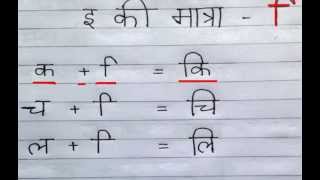 इ की मात्रा - ि
क + ि = कि
च + ि = चि
ल + ि = लि